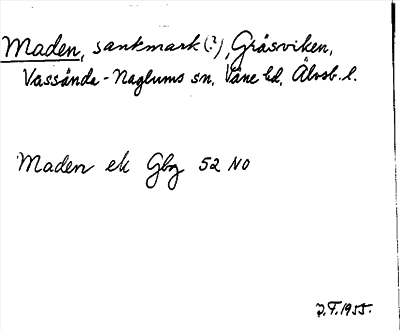 Maden, sankmark (?), Gråsviken,
Vassända-Naglums sn, Väne hd, Älvsb. l.
Maden ek Gbg 52 NO
J.F. 1955.